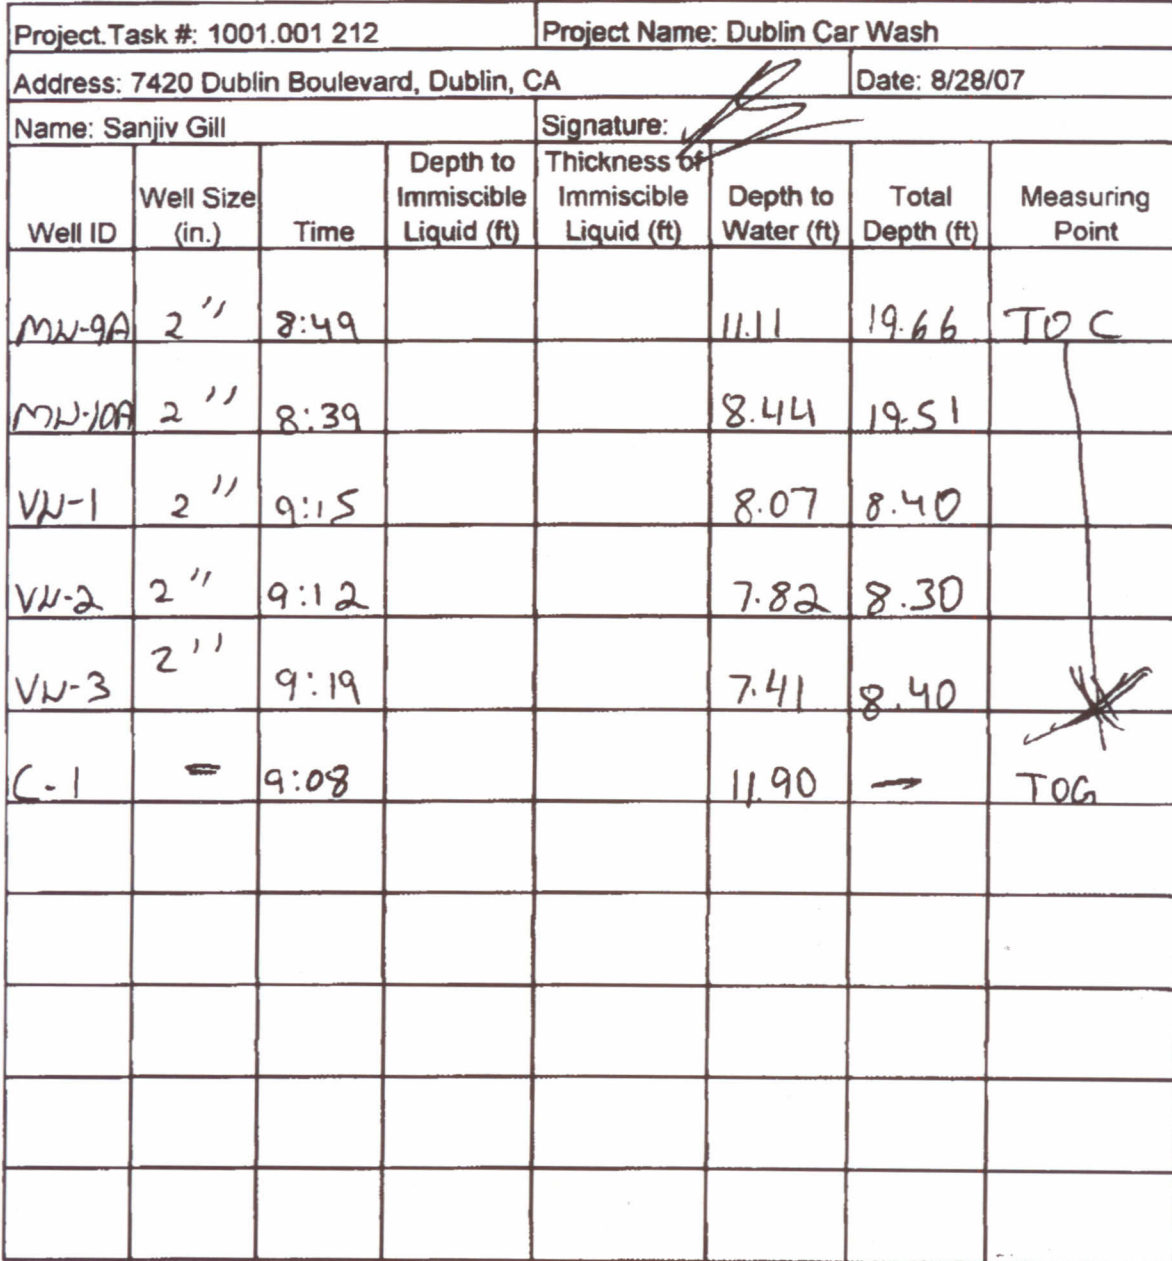 Project.Task #: 1001.001 212 Project Name: Dublin Car Wash
Address: 7420 Dublin Boulevard, Dublin, CA Date: 8/28/07
Name: Sanjiv Gill Signature:
Well ID Well Size (in.) Time Depth to Immiscible Liquid (ft) Thickness of Immiscible Liquid (ft) Depth to Water (ft) Total Depth (ft) Measuring Point
MW-9A 2" 8:49 11.11 19.66 TOC
MW-10A 2" 8:39 8.44 19.51
VW-1 2" 9:15 8.07 8.40
VW-2 2" 9:12 7.82 8.30
VW-3 2" 9:19 7.41 8.40
C-1 - 9:08 11.90 - TOG